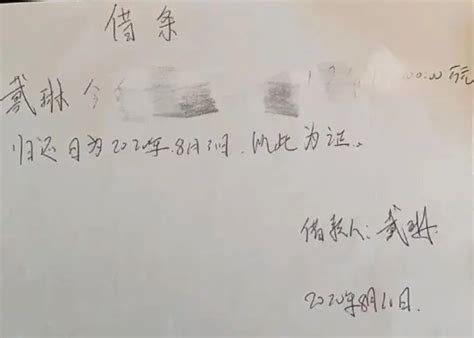 借条
戴琳今
00.00万元
归还日为2020年8月30日.以此为证。
借款人:戴琳
2020年8月20日.